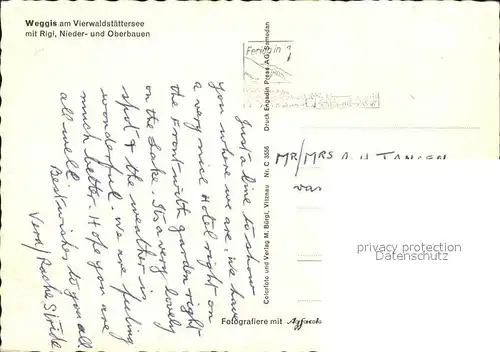 Weggis am Vierwaldstättersee
mit Rigi, Nieder- und Oberbauen
Just a line to show
you where we are, we have
a very nice Hotel right on
the Front with garden right
on the Lake. Its a very lovely
spot & the weather is
wonderful we are feeling
much better. Hope you are
all well
Best wishes to you all.
Druck Engadin Press AG, Samedan
Nr. C 3556
Colorfoto und Verlag M. Bürgi, Vitznau
Ferien in
MR/MRS A. H. JANSEN
privacy protection
Datenschutz
Fotografiere mit Agfacolor